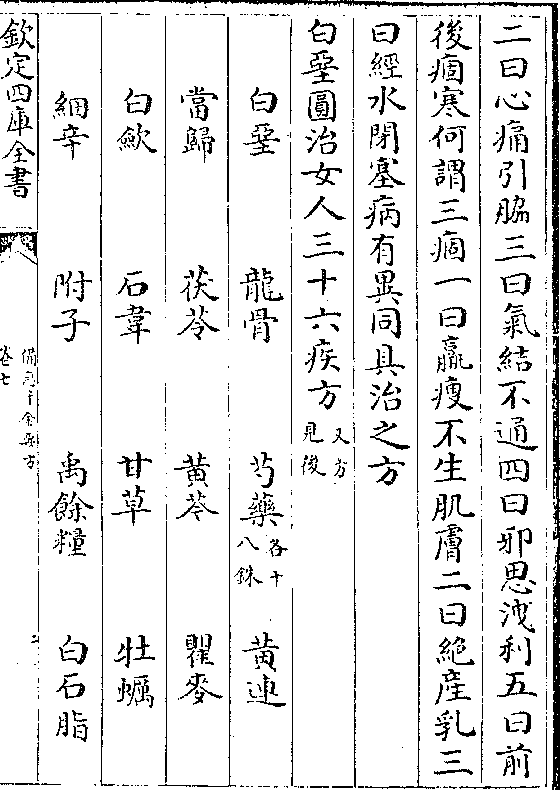 二曰心痛引脇三曰氣結不通四曰邪思洩利五曰前
後痼寒何謂三痼一曰羸瘦不生肌膚二曰絶産乳三
曰經水閉塞病有異同具治之方
白堊圓治女人三十六疾方又方見後
白堊 龍骨 芍藥各十八銖 黄連
當歸 茯苓 黄芩 瞿麥
白歛 石韋 甘草 牡蠣
細辛 附子 禹餘糧 白石脂
欽定四庫全書 備急千金要方 卷七